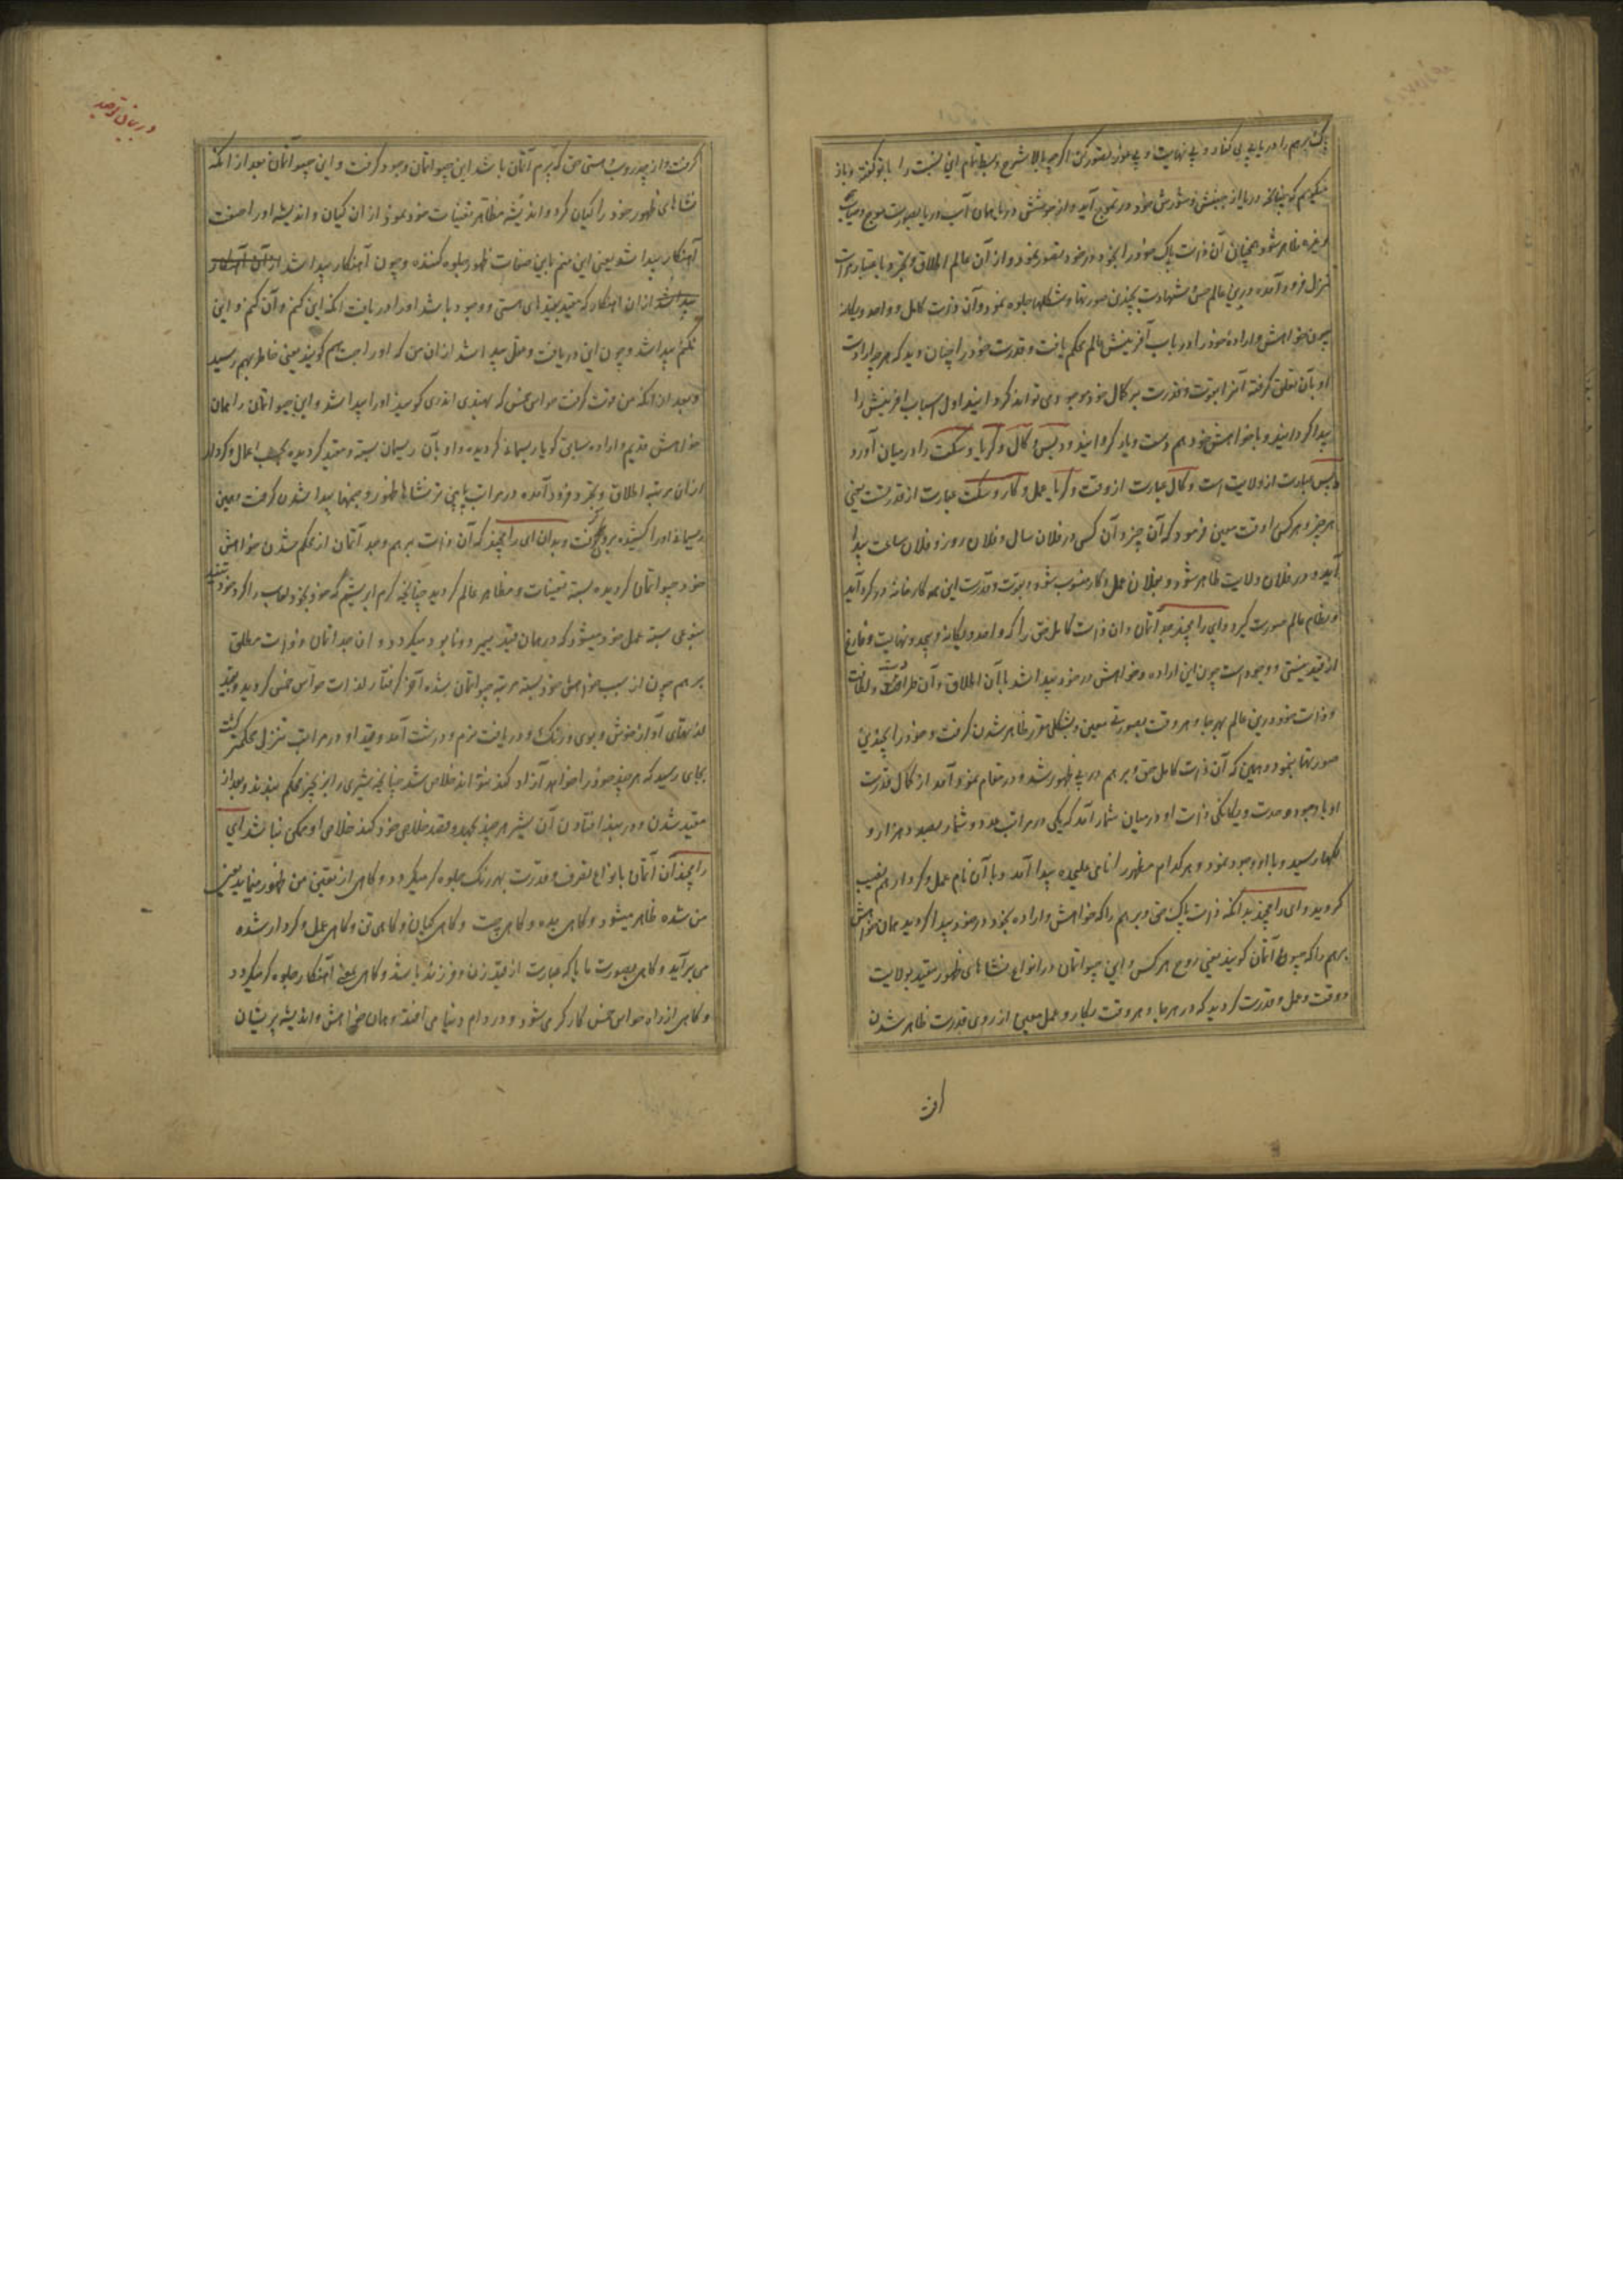 پاک برهم را دریای بی کنار و بی نهایت و بی مرز تصور کن اگرچه بالا بشرح و بسط تمام این نسبت را با تو گفته و باز
میگویم که چنانچه دریا از جنبش و شورش خود در تموج آید و از جوشش دریا همان آب دریا بصورت موج و حباب
و غیره ظاهر شود همچنان آن ذات پاک خود را بخود در خود تصور نمود و از آن عالم اطلاق و تجرد باعتبار مراتب
تنزل فرود آمده درین عالم حس و شهادت بچندین صورتها و شکلها جلوه نمود و آن ذات کامل و واحد و یگانه
چون خواهش و اراده خود را در باب آفرینش عالم محکم یافت و قدرت خود را چنان دید که هرچه ارادت
او بآن تعلق گرفته آنرا بقوت و قدرت بر کمال خود موجود می تواند گردانید اول اسباب آفرینش را
پیدا گردانید و با خواهش خود هم دست و یار گردانید و دیس و کال و کریا و سکت را در میان آورد
دیس عبارت از ولایت است و کال عبارت از وقت و کریا عمل و کار و سکت عبارت از قدرتست یعنی
هر چیز و هر کس را وقت معین فرمود که آن چیز و آن کس در فلان سال و فلان روز و فلان ساعت پیدا
آید و در فلان ولایت ظاهر شود و بفلان عمل و کار منسوب شود و بقوت و قدرت این همه کارخانه در گرد آید
و نظام عالم صورت گیرد و ای رامچند جد آتمان و آن ذات کامل حق را که واحد و یگانه و بیحد و نهایت و فارغ
از قید نیستی و وجود است چون این اراده و خواهش در خود پیدا شد با آن اطلاق و آن طراوت و لطافت
و ذات خود درین عالم بهر جا و هر وقت بصورتی معین و بشکلی مقرر ظاهر شدن گرفت و خود را بچندین
صورتها بنمود و همین که آن ذات کامل حق و برهم در پی ظهور شد و در مقام نمود آمد از کمال قدرت
او با وجود وحدت و یگانگی ذات او در میان شمار آمد که یکی در مراتب عدد و شمار بصد و هزار و
لکها رسید و با او وجود نمود و هر کدام مظهر را نامی علیحده پیدا آمد و با آن نام عمل و کردار هم نصیب
گردید و ای رامچند بدانکه ذات پاک حق و برهم را که خواهش و اراده بخود در خود پیدا گردید همان خواهش
برهم را که جیو آتمان گویند یعنی روح هر کس و این جیو اتمان در انواع نشاهای ظهور مقید بولایت
و وقت و عمل و قدرت گردید که در هر جا و هر وقت بکار و عمل معین از روی قدرت ظاهر شدن
در بیان توحید
گرفت و از چدروپ هستی حق که پرم آتمان باشد این جیو اتمان وجود گرفت و این جیو اتمان بعد از انکه
نشاهای ظهور خود را گیان کرد و اندیشه مظاهر تعینات خود نمود از ان گیان و اندیشه او را صفت
آهنکار پیدا شد یعنی این منم باین صفات ظهور جلوه کننده و چون آهنکار پیدا شد از آن آهنکار
پیدا شد از ان آهنکار که مقید بقیدهای هستی و وجود باشد او را دریافت انکه این کنم و آن کنم و این
نکنم پیدا شد و چون این دریافت و عقل پیدا شد از ان من که او را چت هم گویند یعنی خاطر بهم رسید
و بعد از انکه من قوت گرفت حواس خمس که بهندی اندری گویند او را پیدا شد و این جیو اتمان را همان
خواهش قدیم و اراده سابق گویا ریسمانه گردیده و او بآن ریسمان بسته و مقید گردیده بحسب اعمال و کردار
از ان مرتبه اطلاق و تجرد فرود آمده در مراتب پایین تر نشاها ظهور و جنمها پیدا شدن گرفت و همین
ریسمانه او را کشیده برد و بدان ای رامچند که آن ذات برهم و جد آتمان از محکم شدن خواهش
خود جیو اتمان گردیده بسته تعینات و مظاهر عالم گردید چنانچه کرم ابریشم که خود بخود لعاب را گرد خود تنیده
بنوعی بسته عمل خود میشود که در همان قید بمیرد و نابود میگردد و ان جد اتمان و ذات مطلق
برهم چون از سبب خواهش خود بسته مرتبه جیو اتمان شده آخر گرفتار لذات حواس خمس گردید و بقید
لذتهای آواز خوش و بوی و رنگ و دریافت نرم و درشت آمد و قید او در مراتب تنزل محکمتر گشت
بجای رسید که هرچند خود را خواهد آزاد کند نتواند خلاص شد چنانچه شیری را بزنجیر محکم ببندند و بعد از
مقید شدن و در بند افتادن آن شیر هرچند بجهد و قصد خلاصی خود کند خلاصی او ممکن نباشد ای
رامچند آن آتمان بانواع تصرف و قدرت بهر رنگ جلوه گر میگردد و گاهی از تعین من ظهور مینماید یعنی
من شده ظاهر میشود و گاهی بده و گاهی چت و گاهی گیان و گاهی تن و گاهی عمل و کردار شده
می برآید و گاهی بصورت مایا که عبارت از قید زن و فرزند باشد و گاهی بمعنی آهنکار جلوه گر میگردد
و گاهی از راه حواس خمس کارگر می شود و در دام دنیا می افتد و همان خواهش و اندیشه پریشان